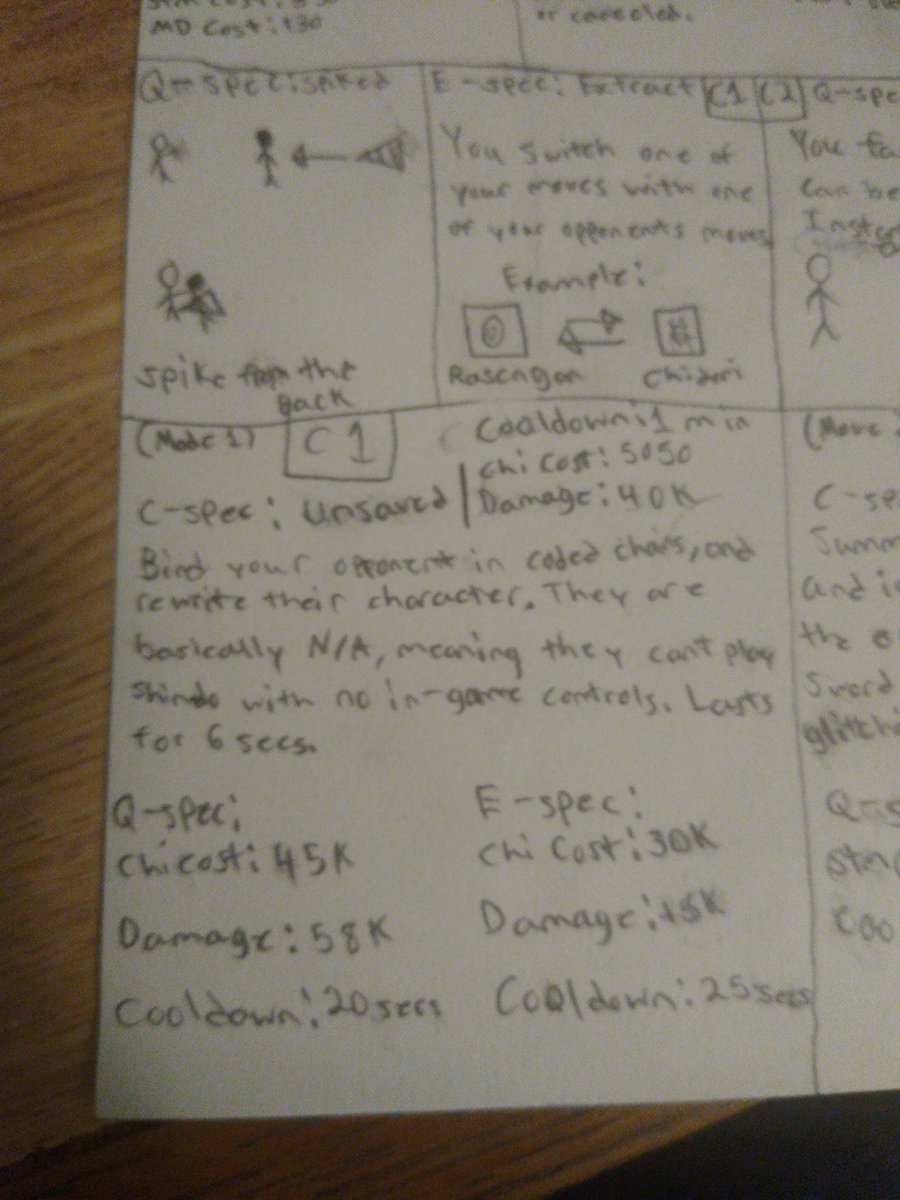 MD Cost: 130
or canceled.
Q-spec: spiked
spike from the
Back
E-spec: Extract
You switch one of
your moves with one
of your opponents moves
Example:
Rasengan
Chidori
C1
C2
Q-spe
You fa
can be
(Mode 1)
C1
Cooldown: 1 min
Chi Cost: 5050
C-spec: Unsaved
Damage: 40K
Bind your opponent in coded chains, and
rewrite their character. They are
basically N/A, meaning they cant play
Shindo with no in-game controls. Lasts
for 6 secs.
Q-spec:
Chi cost: 45K
Damage: 58K
Cooldown: 20 secs
E-spec:
Chi Cost: 30K
Damage: 15K
Cooldown: 25 secs
C-spe
Summ
and i
the e
Sword
glitch
Q-s
Coo